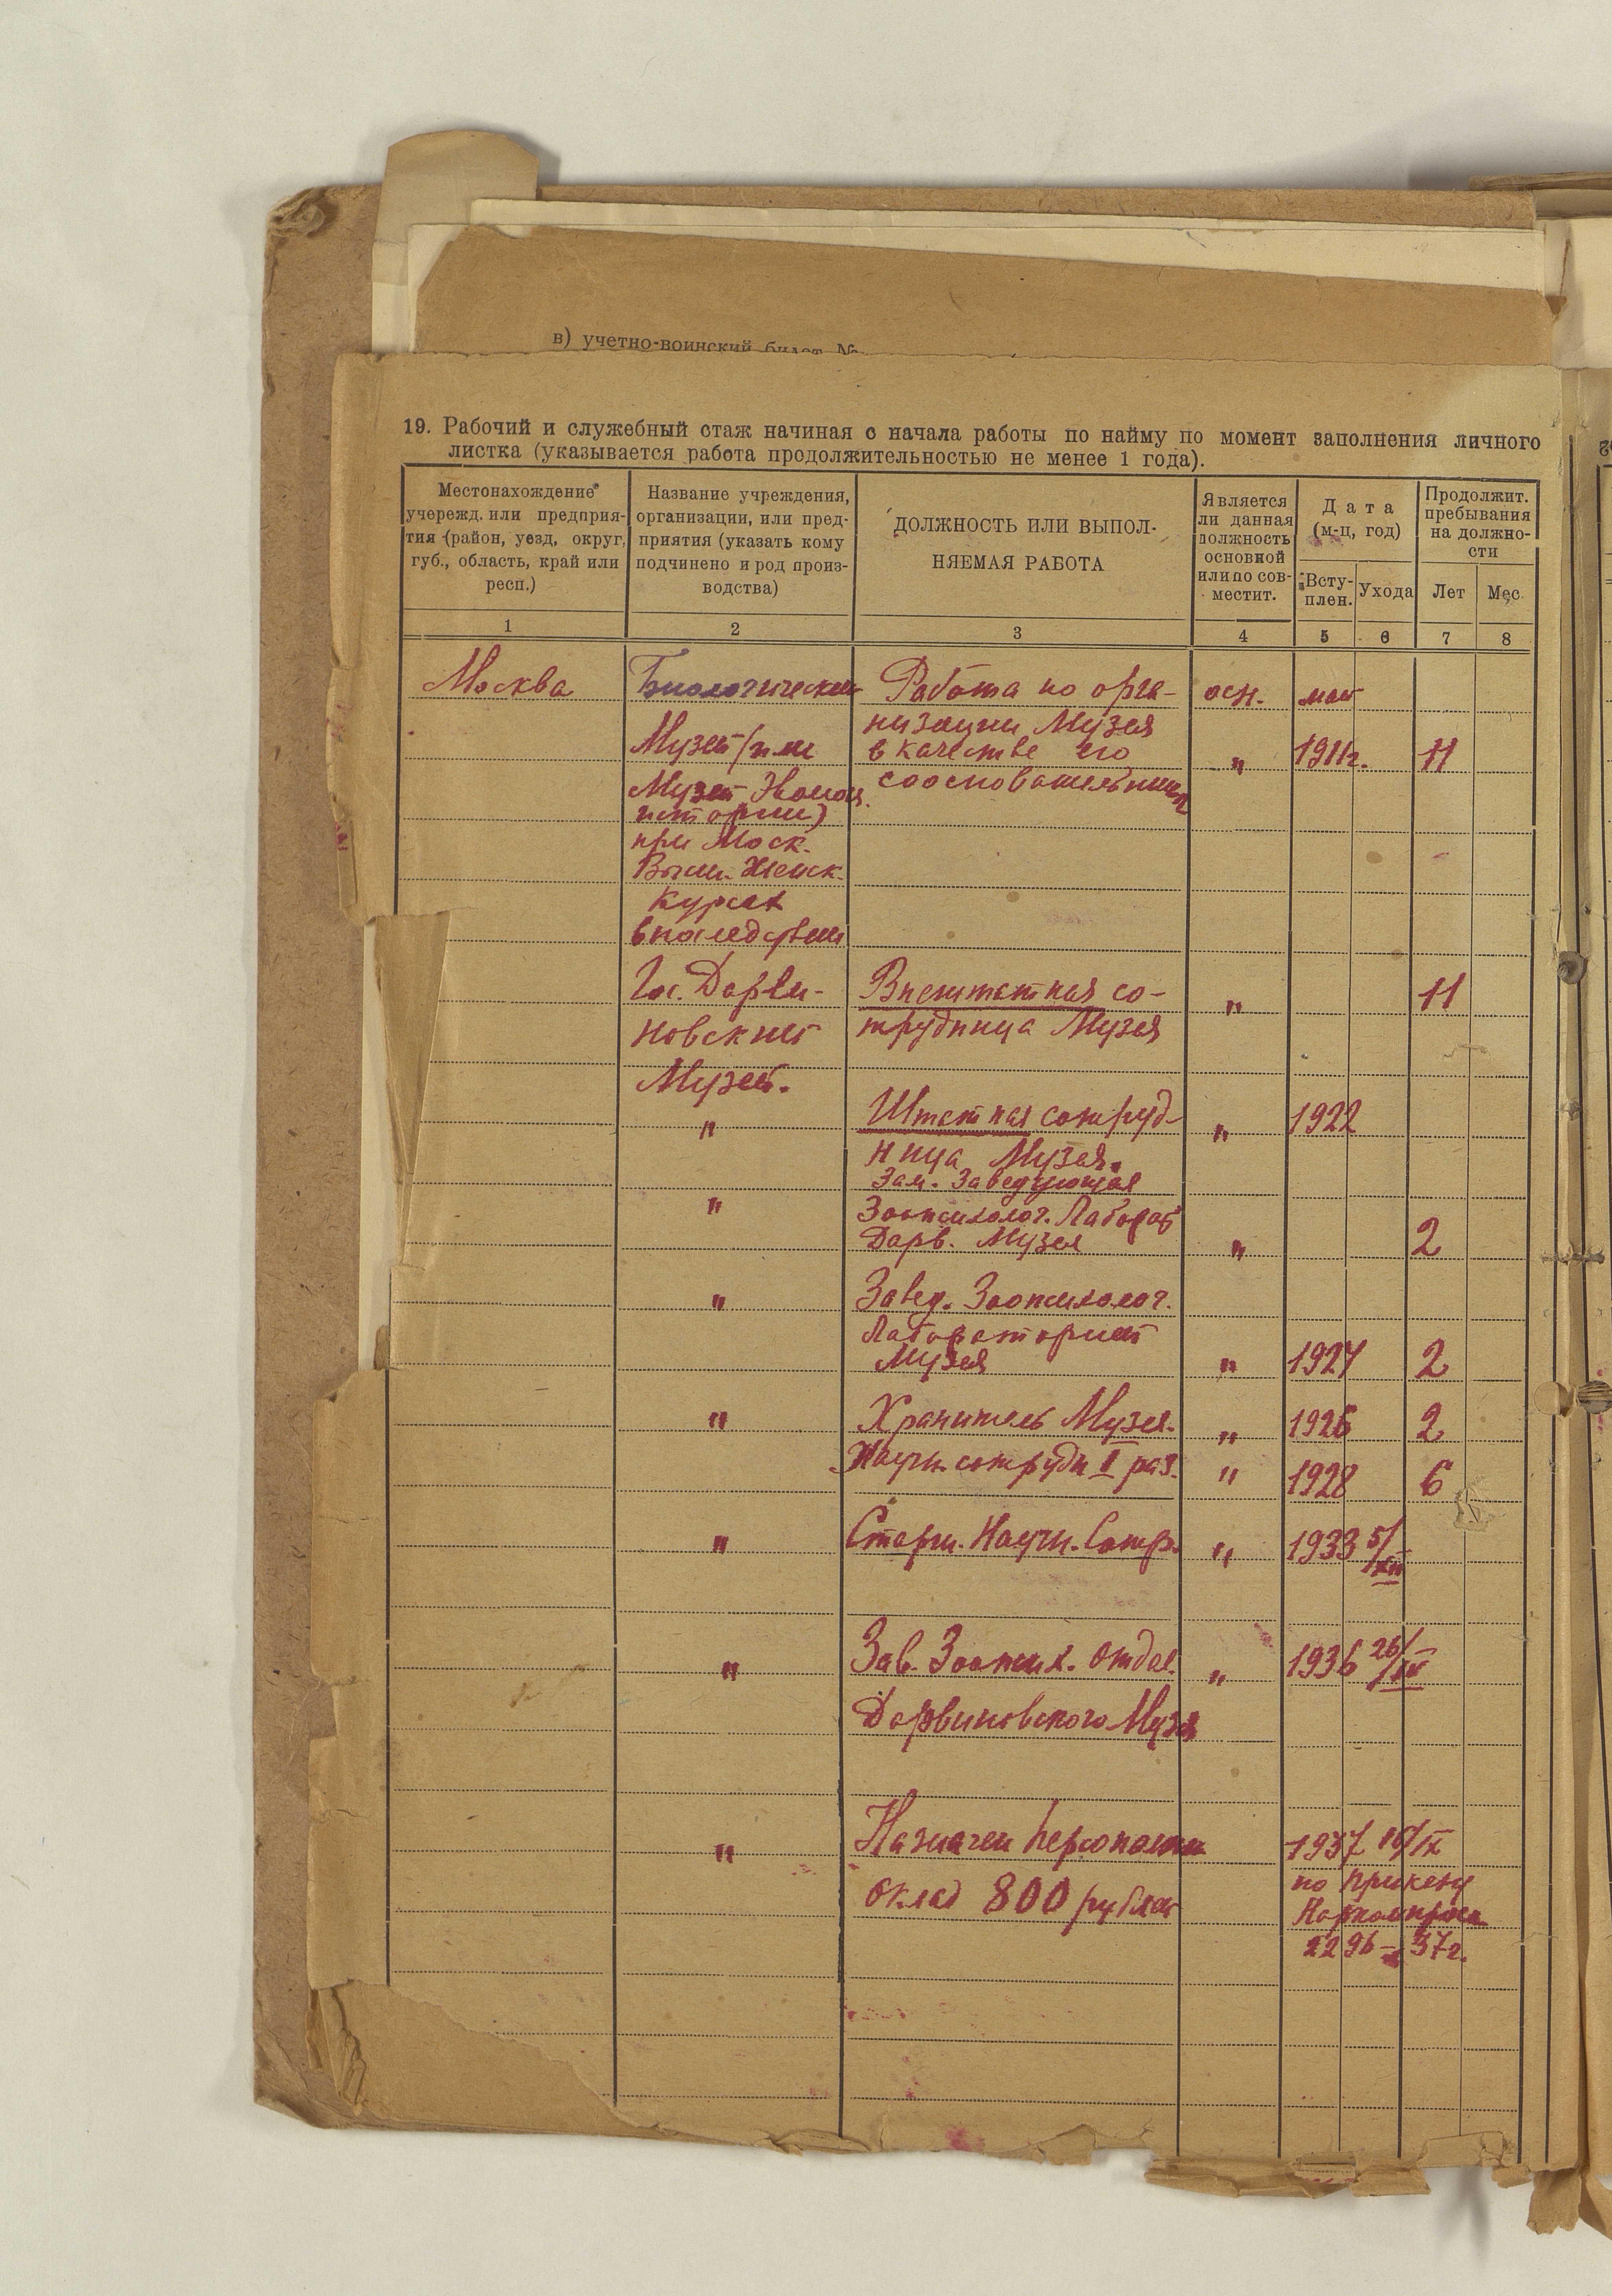 в) учетно-воинский билет №
19. Рабочий и служебный стаж начиная с начала работы по найму по момент заполнения личного
листка (указывается работа продолжительностью не менее 1 года).
Местонахождение
учережд. или предприя-
тия (район, уезд, округ,
губ., область, край или
респ.)
Название учреждения,
организации, или пред-
приятия (указать кому
подчинено и род произ-
водства)
ДОЛЖНОСТЬ ИЛИ ВЫПОЛ-
НЯЕМАЯ РАБОТА
Является
ли данная
должность
основной
или по сов-
местит.
Дата
(м-ц, год)
Всту-
плен.
Ухода
Продолжит.
пребывания
на должно-
сти
Лет
Мес.
1 2 3 4 5 6 7 8
Москва
Биологический
Музей (или
Музей Эволюц.
истории)
при Моск.
Высш. Женск.
Курсах
впоследствии
Гос. Дарви-
новский
Музей.
Работа по орга-
низации Музея
в качестве его
сооснователь­ницы
осн. май
" 1911г. 11
Внештатная со-
трудница Музея
" 11
" Штатная сотруд- " 1922
ница Музея.
Зам. Заведующая
" Зоопсихолог. Лаборат
Дарв. Музея " 2
" Завед. Зоопсихолог.
Лабораторией
Музея " 1924 2
" Хранитель Музея. " 1926 2
Научн. сотрудн II раз. " 1928 6
" Старш. Научн. Сотр. " 1933 5/XII
" Зав. Зоопсих. отдел. " 1936 26/IV
Дарвиновского Музея
" Назначен персональн 1937 16/IX
оклад 800 рублей
по приказу
Наркомпроса
2296 - 37г.